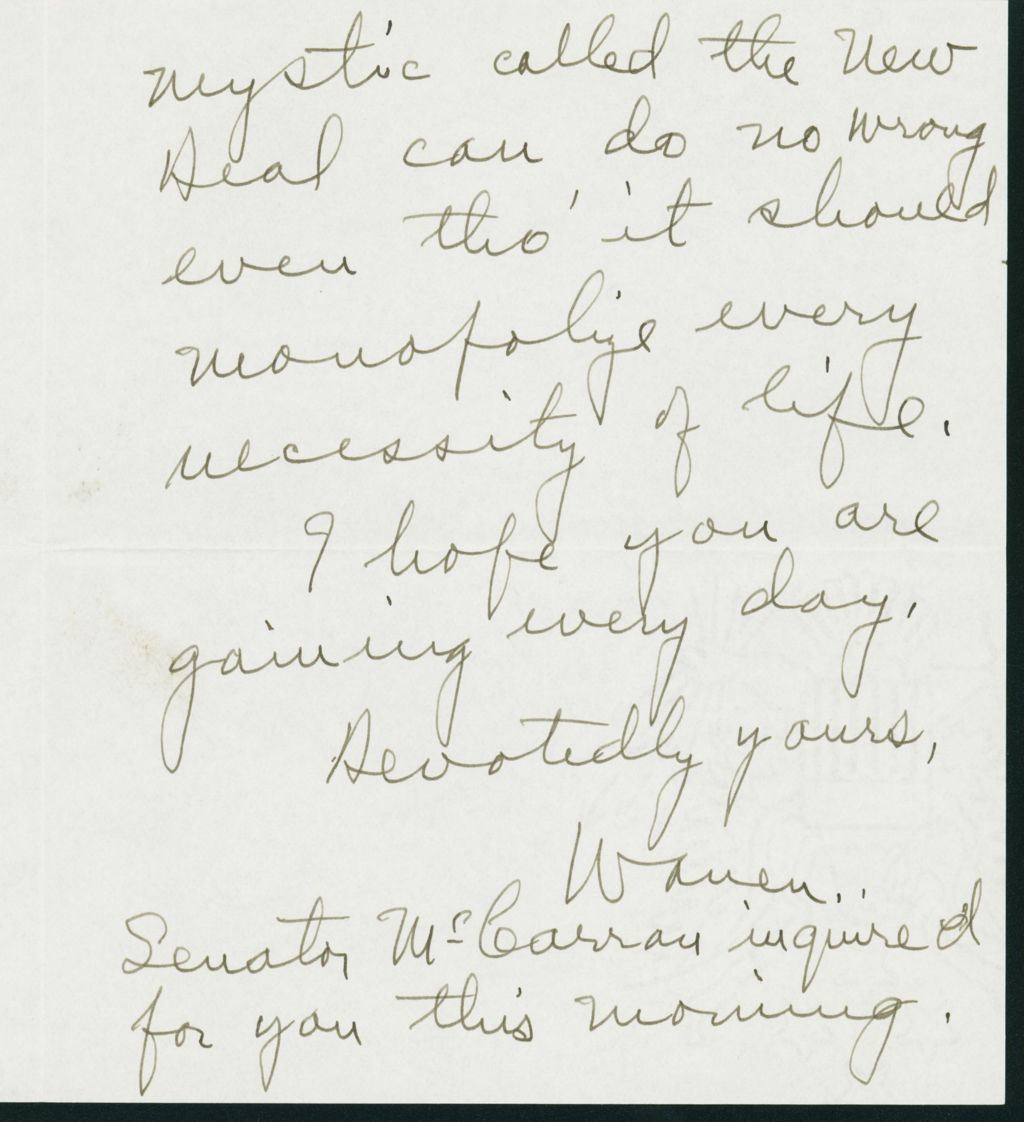 mystic called the New
Deal can do no wrong
even tho' it should
monopolize every
necessity of life.
I hope you are
gaining every day.
Devotedly yours,
Warren.
Senator McCarran inquired
for you this morning.